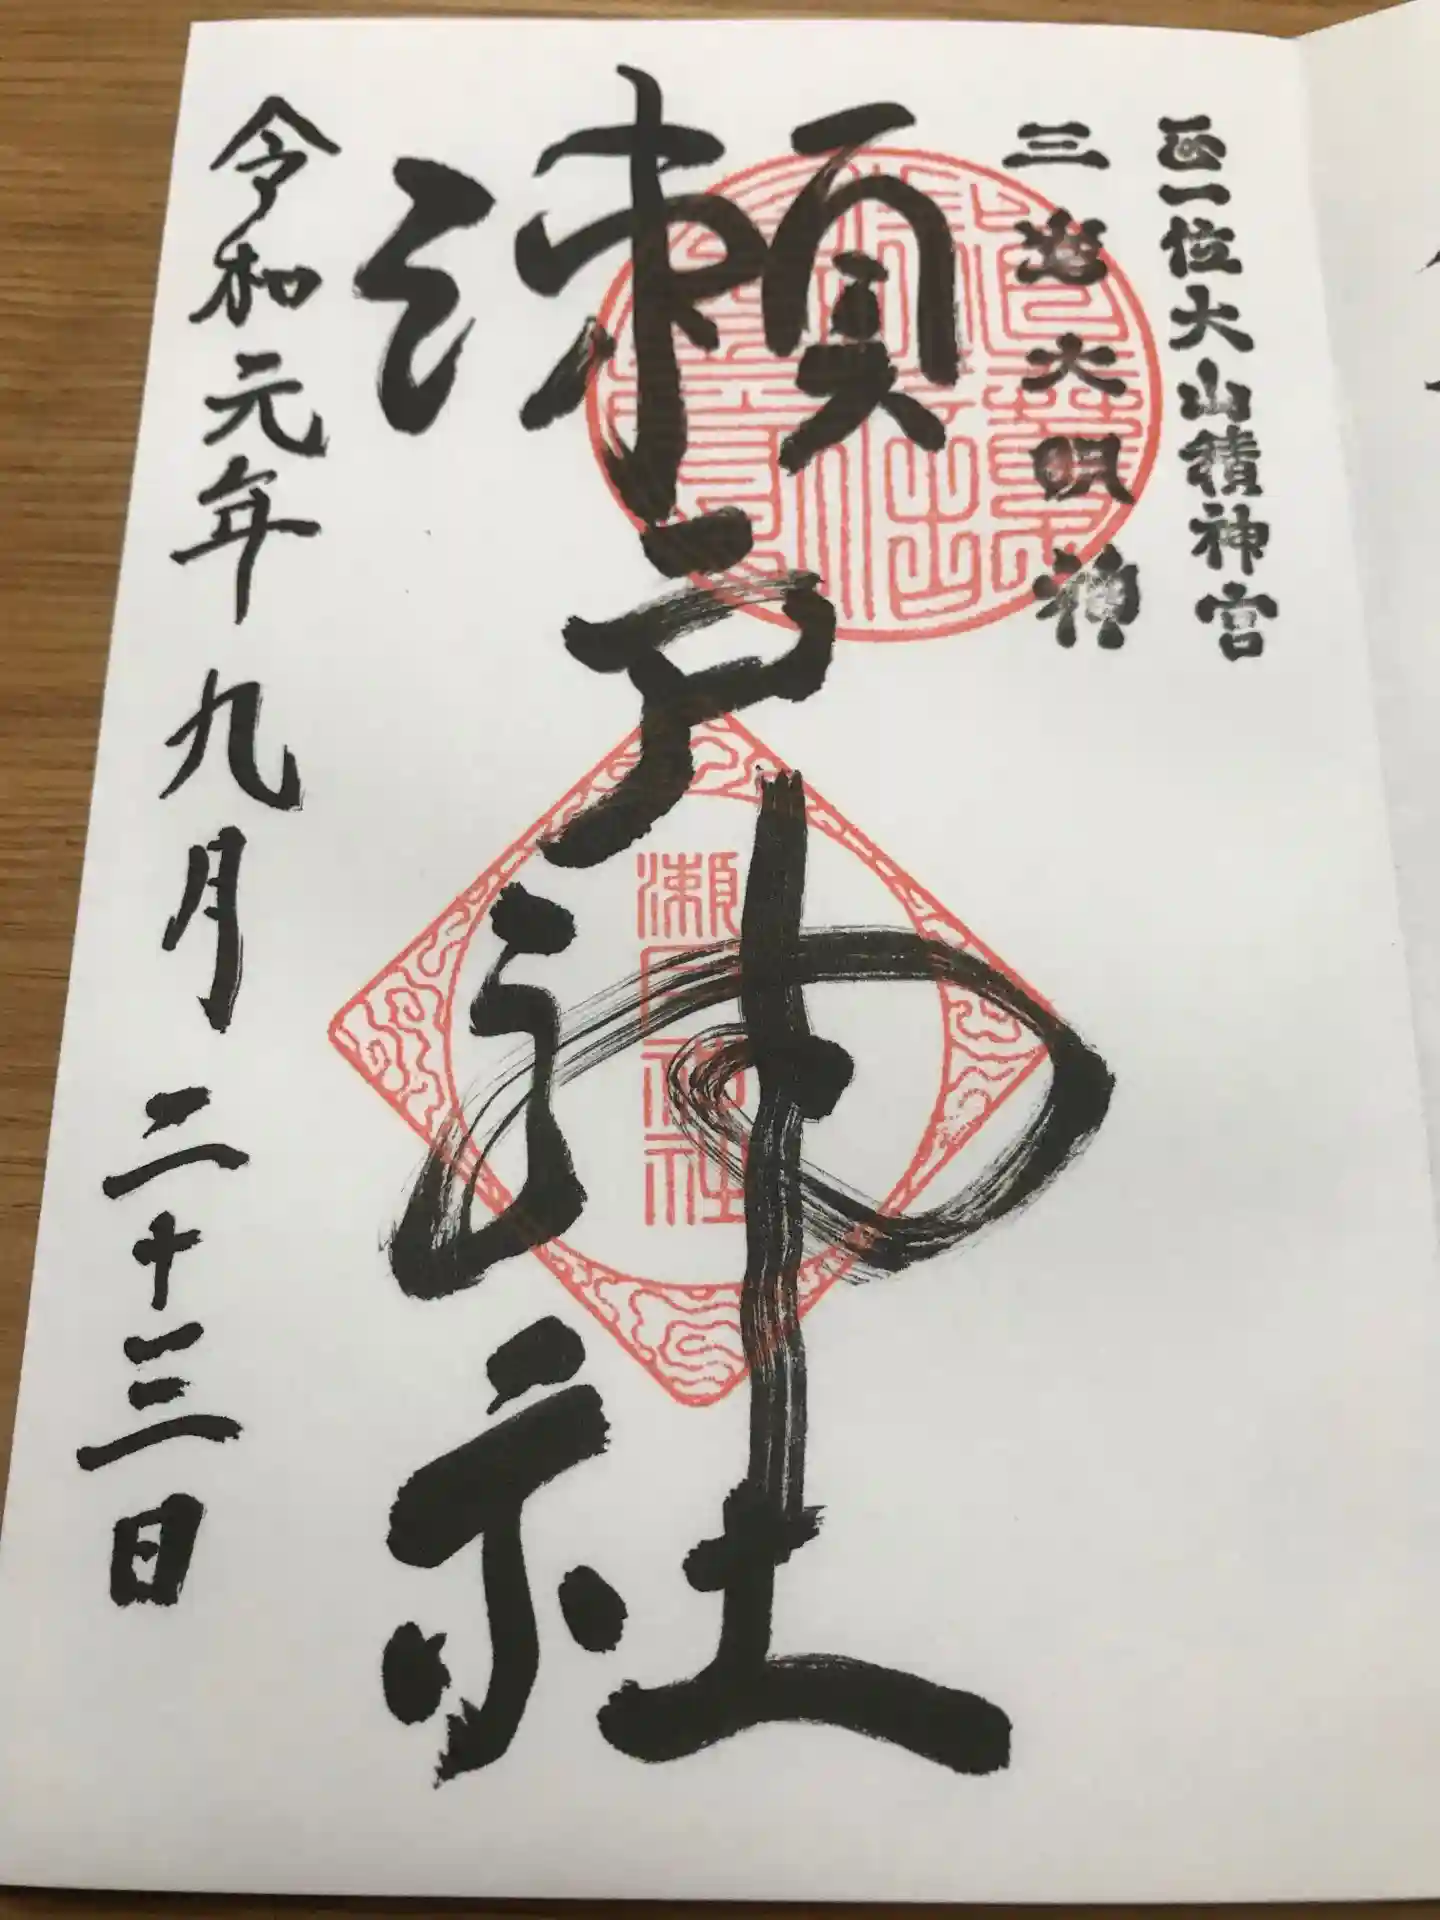 正一位大山積神宮
三島大明神
瀬戸神社
瀬戸神社
令和元年九月二十三日